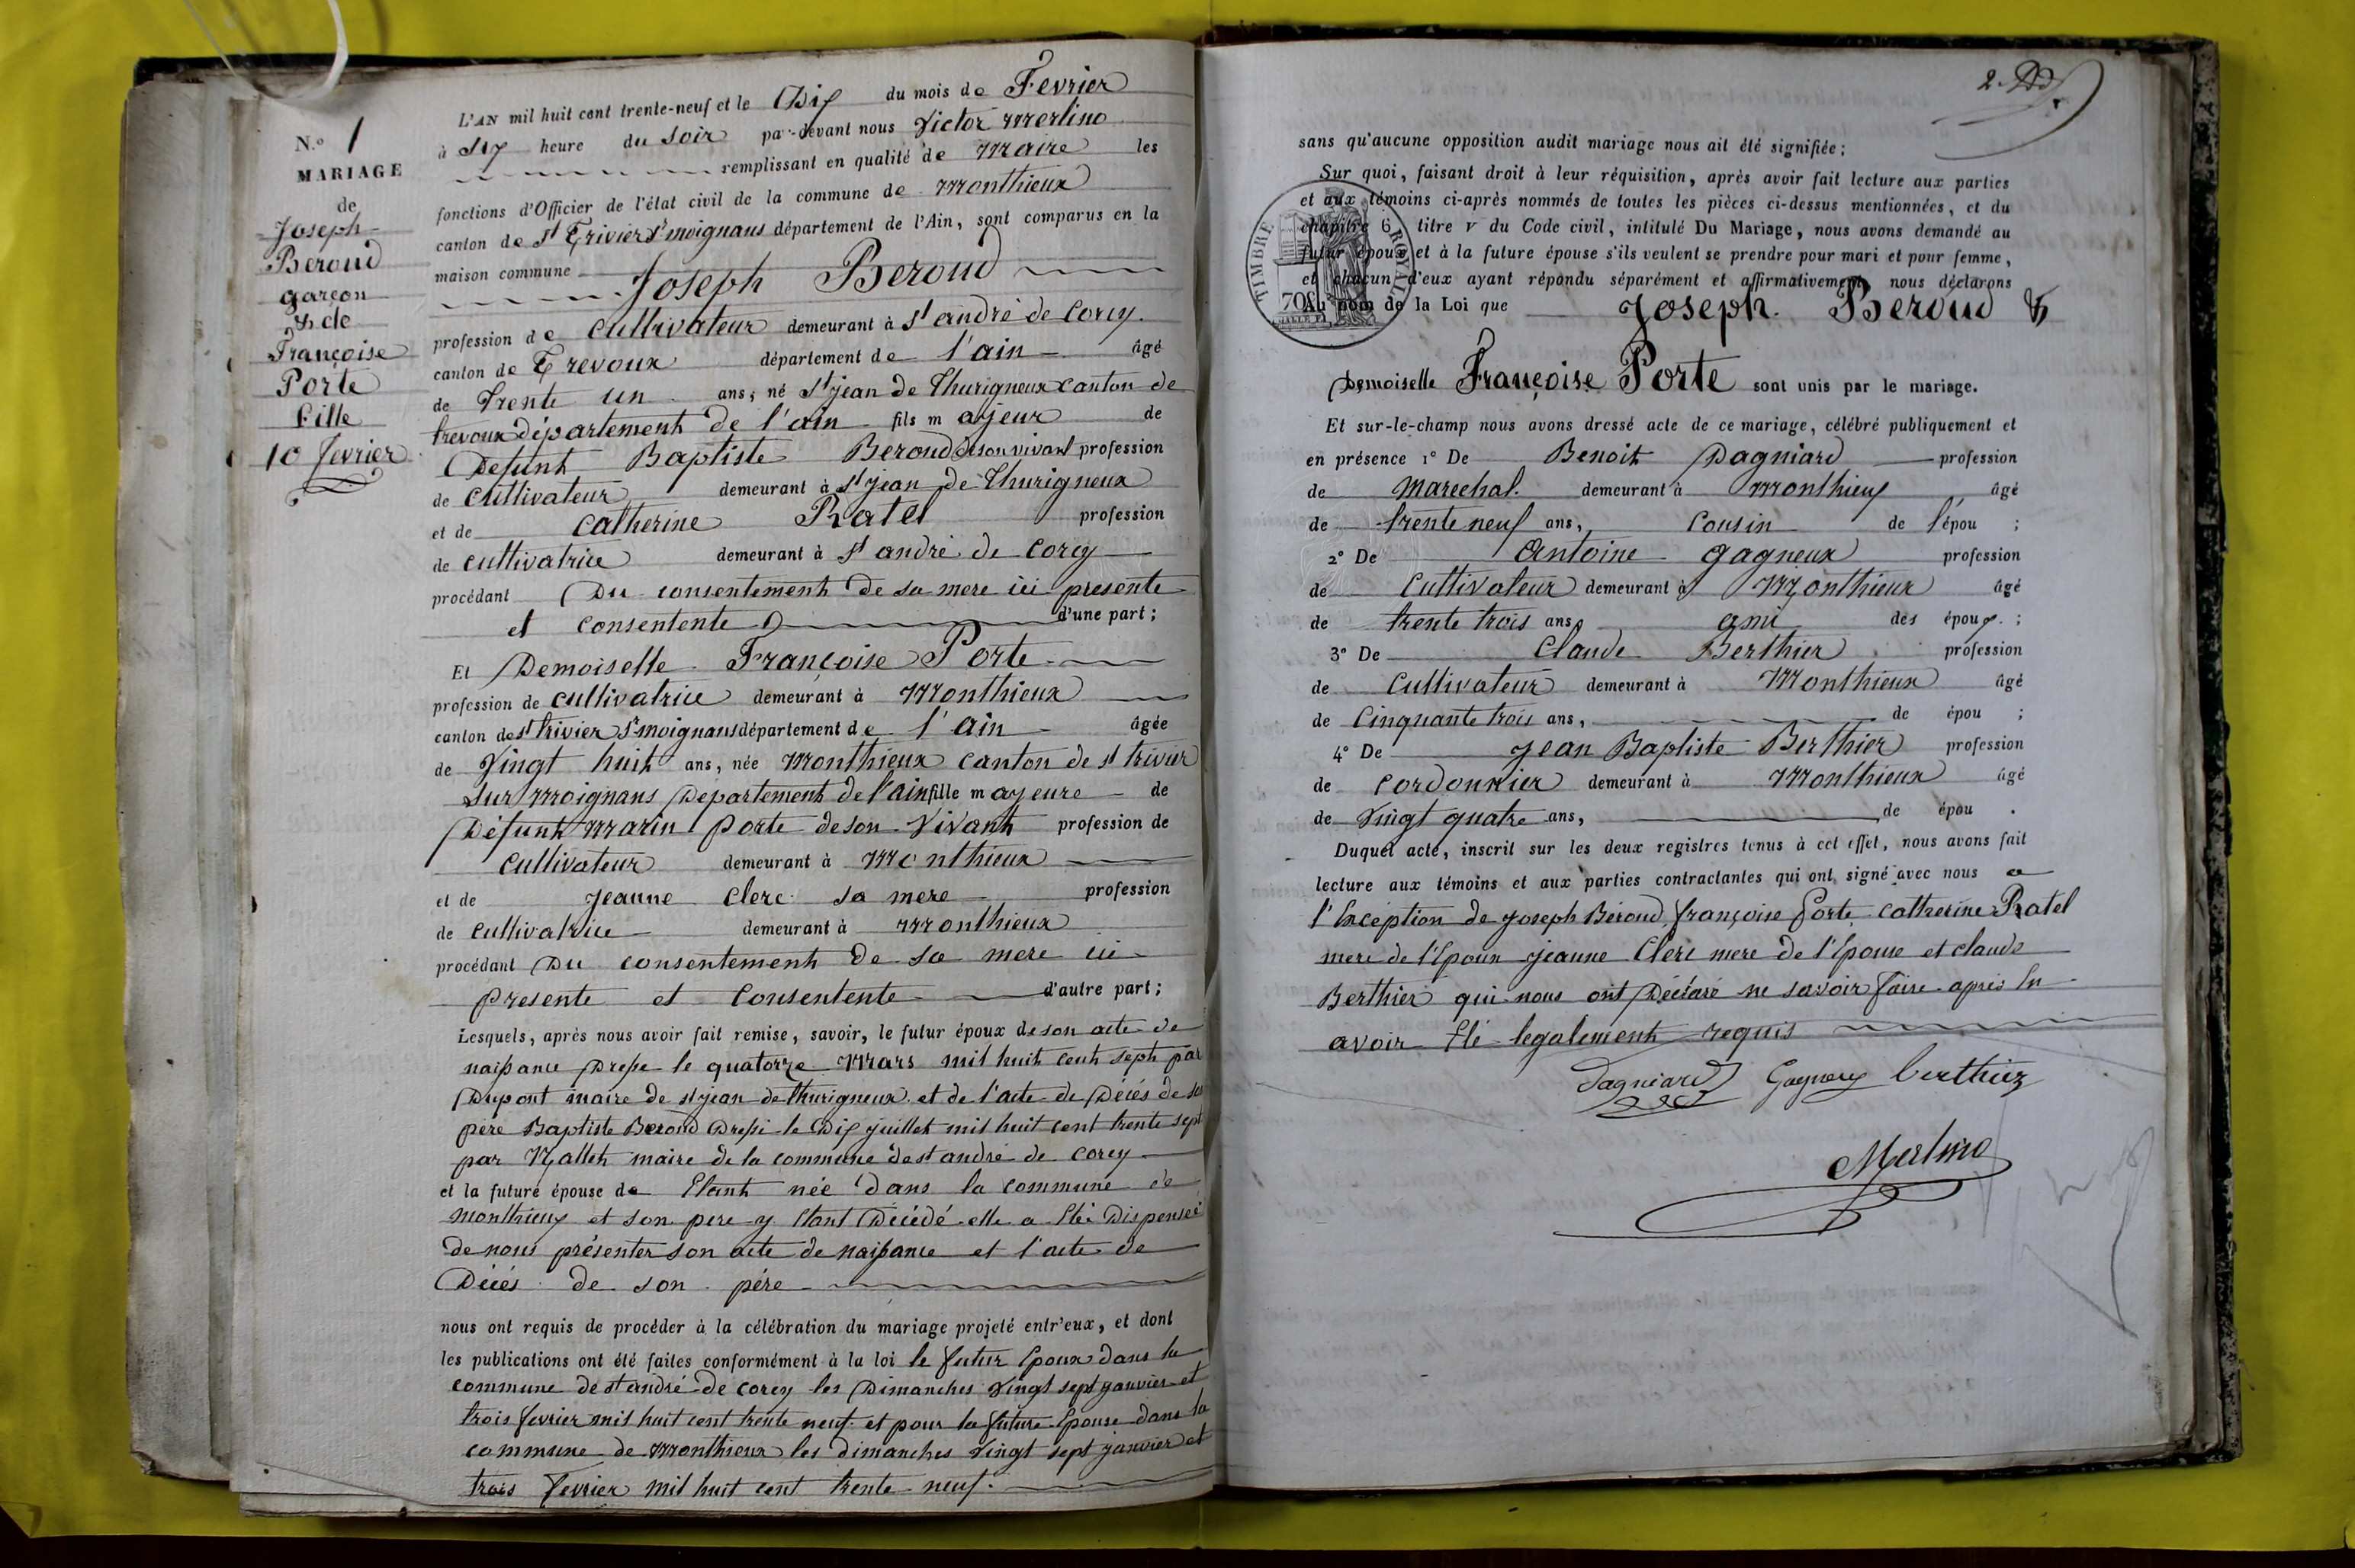 N.º 1
MARIAGE
de
Joseph
Beroud
garçon
& de
Françoise
Porte
fille
10 fevrier
L'AN mil huit cent trente-neuf et le Dix du mois de Fevrier
à six heure du soir par-devant nous Victor Merlino
remplissant en qualité de Maire les
fonctions d'Officier de l'état civil de la commune de Monthieux
canton de st Trivier s. moignans département de l'Ain, sont comparus en la
maison commune
Joseph Beroud
profession de cultivateur demeurant à st andré de Corcy
canton de Trevoux département de l'ain âgé
de trente un ans, né st jean de Thurigneux canton de
trevoux département de l'ain fils majeur de
Defunt Baptiste Beroud de son vivant profession
de cultivateur demeurant à st jean de Thurigneux
et de catherine Ratel profession
de cultivatrice demeurant à st andré de corcy
procédant Du consentement de sa mere ici presente
et consentente d'une part;
Et Demoiselle Françoise Porte
profession de cultivatrice demeurant à Monthieux
canton de st trivier s. moignans département de l'ain âgée
de Vingt huit ans, née Monthieux canton de st trivier
sur Moignans Departement de l'ain fille majeure de
Défunt Marin Porte de son Vivant profession de
cultivateur demeurant à Monthieux
et de jeanne clerc sa mere profession
de cultivatrice demeurant à Monthieux
procédant Du consentement de sa mere ici
presente et consentente d'autre part;
Lesquels, après nous avoir fait remise, savoir, le futur époux de son acte de
naissance Dressé le quatorze Mars mil huit cent sept par
Dupont maire de st jean de thurigneux et de l'acte de Décés de son
père Baptiste Beroud Dressé le Dix juillet mil huit cent trente sept
par Mallet maire de la commune de st andré de corcy
et la future épouse de Etant née dans la commune de
Monthieux et son pere y etant Décédé elle a été Dispenseé
de nous présenter son acte de naissance et l'acte de
Décés de son père
nous ont requis de procéder à la célébration du mariage projeté entr'eux, et dont
les publications ont été faites conformément à la loi le futur Epoux dans la
commune de st andré de corcy les Dimanches Vingt sept janvier et
trois fevrier mil huit cent trente neuf et pour la future Epouse dans la
commune de Monthieux les dimanches Vingt sept janvier et
trois fevrier mil huit cent trente neuf.
2
sans qu'aucune opposition audit mariage nous ait été signifiée;
Sur quoi, faisant droit à leur réquisition, après avoir fait lecture aux parties
et aux témoins ci-après nommés de toutes les pièces ci-dessus mentionnées, et du
chapitre 6, titre v du Code civil, intitulé Du Mariage, nous avons demandé au
futur époux et à la future épouse s'ils veulent se prendre pour mari et pour femme,
et chacun d'eux ayant répondu séparément et affirmativement, nous déclarons
Au nom de la Loi que Joseph Beroud &
TIMBRE ROYAL
70
Demoiselle Françoise Porte sont unis par le mariage.
Et sur-le-champ nous avons dressé acte de ce mariage, célébré publiquement et
en présence 1º De Benoit Dagniard profession
de marechal demeurant à Monthieux âgé
de trente neuf ans, cousin de l'épou ;
2º De Antoine gagneux profession
de Cultivateur demeurant à Monthieux âgé
de trente trois ans, ami des époux ;
3º De Claude Berthier profession
de Cultivateur demeurant à Monthieux âgé
de Cinquante trois ans, de épou ;
4º De jean Baptiste Berthier profession
de cordonnier demeurant à Monthieux âgé
de Vingt quatre ans, de épou .
Duquel acte, inscrit sur les deux registres tenus à cet effet, nous avons fait
lecture aux témoins et aux parties contractantes qui ont signé avec nous a
l'Exception de joseph Béroud, françoise Porte, catherine Ratel
mere de l'Epoux jeanne Clerc mere de l'Epouse et claude
Berthier qui nous ont Déclaré ne savoir faire après En
avoir Eté legalement requis
Dagniard Gagneux berthier
Merlino